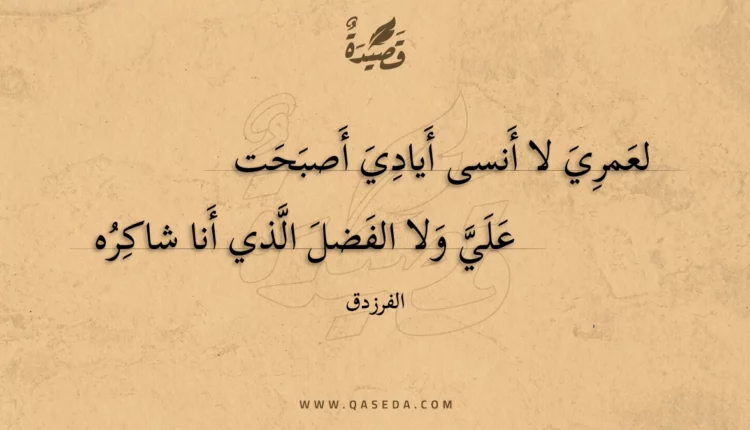 قَصِيدَةٌ
لعَمرِيَ لا أَنسى أَيادِيَ أَصبَحَت
عَلَيَّ وَلا الفَضلَ الَّذي أَنا شاكِرُه
الفرزدق
WWW.QASEDA.COM